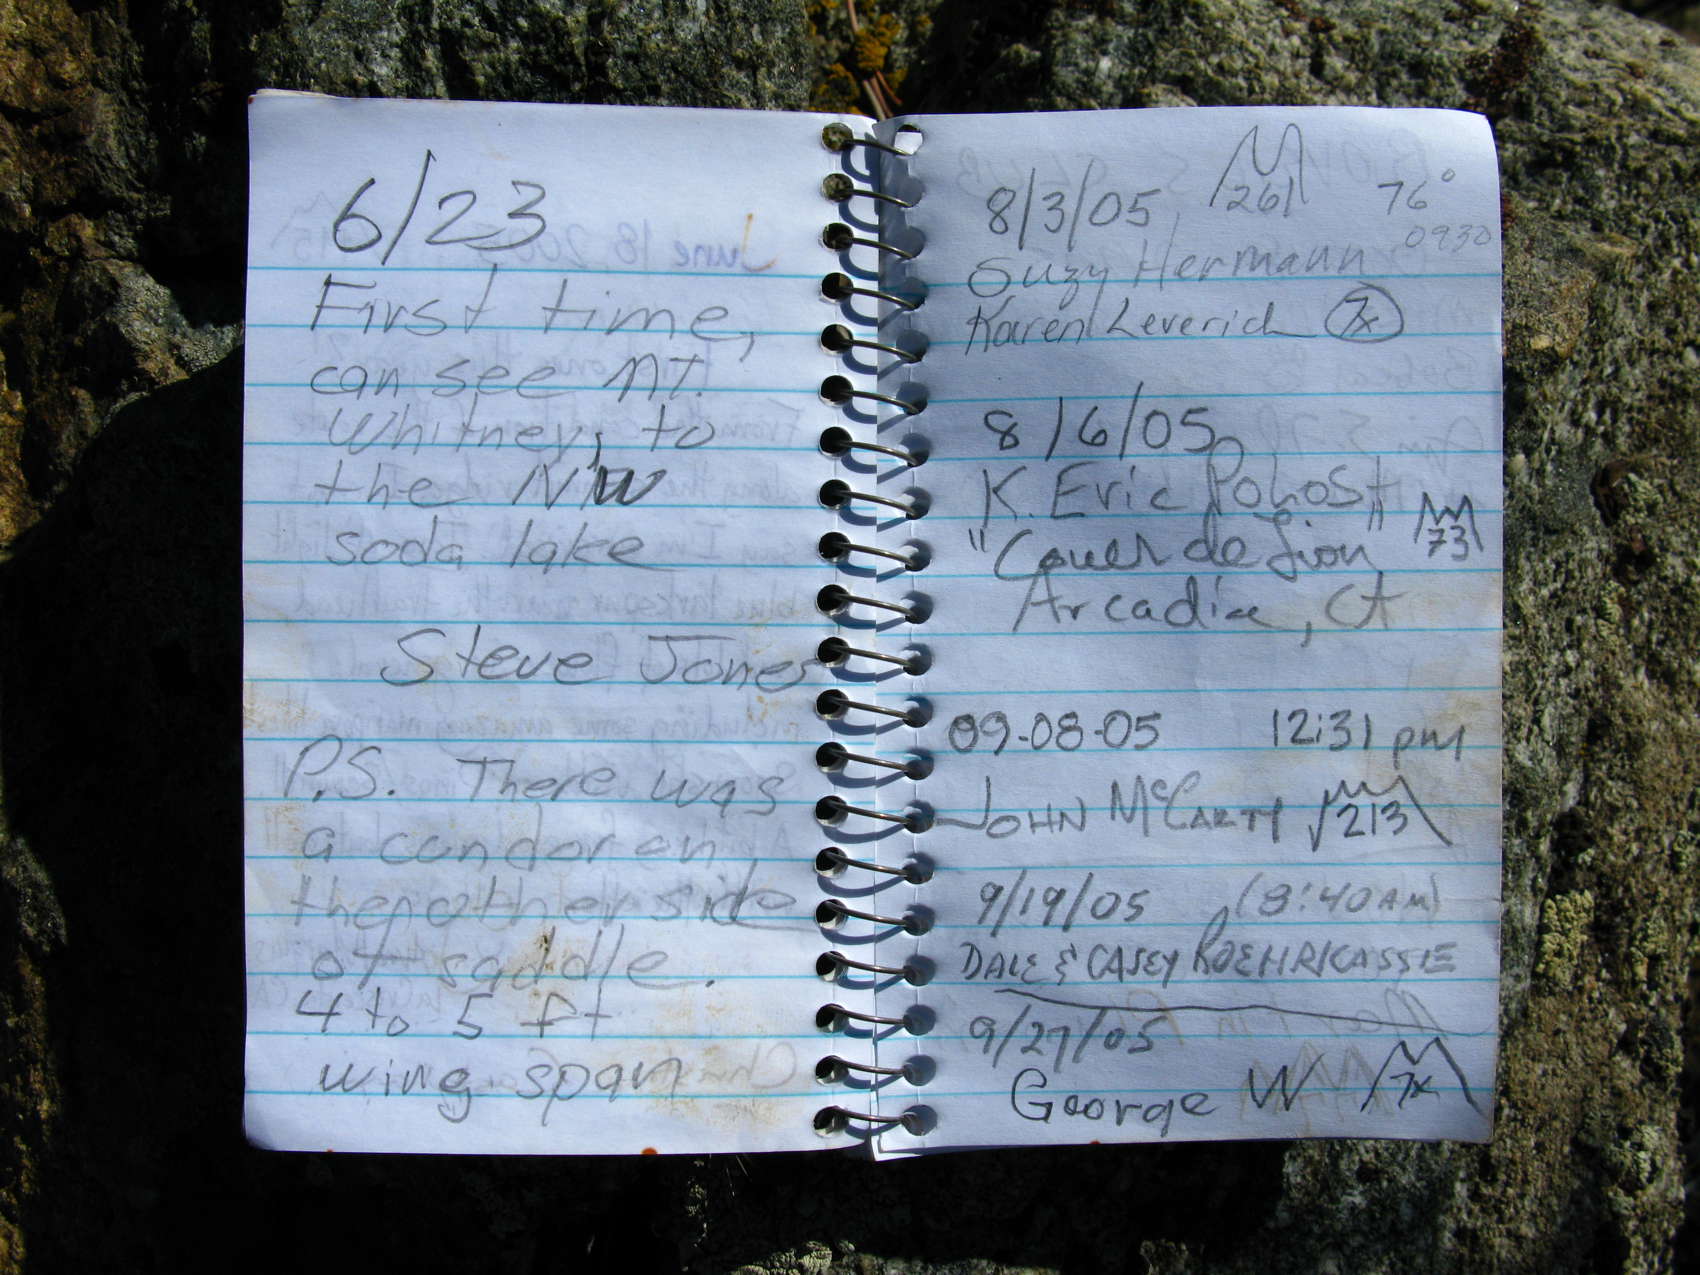 6/23
First time,
can see Mt.
Whitney, to
the NW
soda lake
Steve Jones
P.S. There was
a condor on
the other side
of saddle.
4 to 5 ft
wing span
8/3/05 261 76°
0930
Suzy Hermann
Karen Leverich 7x
8/6/05
K. Eric Pohost
"Couer de Lion" 73
Arcadia, CA
09-08-05 12:31 pm
JOHN McCARTY 213
9/19/05 (8:40 AM)
DALE & CASEY ROEHRICASSIE
9/27/05
George W 7x
June 18, 200